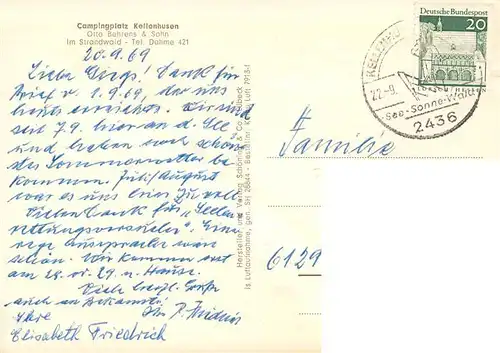 Campingplatz Kellenhusen
Otto Behrens & Sohn
Im Strandwald - Tel. Dahme 421
20.9.69
Liebe Dank für
Brief v. 1.9.69, der uns
hier erreichte. Wir sind
seit 7.9. hier an d. See
und haben noch schön-
des Sommerwetter be-
kommen. Juli/August
war es uns hier zu voll.
Vielen Dank für „Seelen
rettungsvorhaben". Eine
rege Aussprache wäre
schön. Wir kommen erst
am 28. od. 29. n. Hause.
Viele herzl. Grüße
auch an Bekannte!
Ihre
Elisabeth Friedrich
Hersteller und Verlag Schöning & Co. Lübeck
Luftaufnahme, gen. SH
Deutsche Bundespost
20
22.-9.
See-Sonne-Wald
2436
Familie
6129